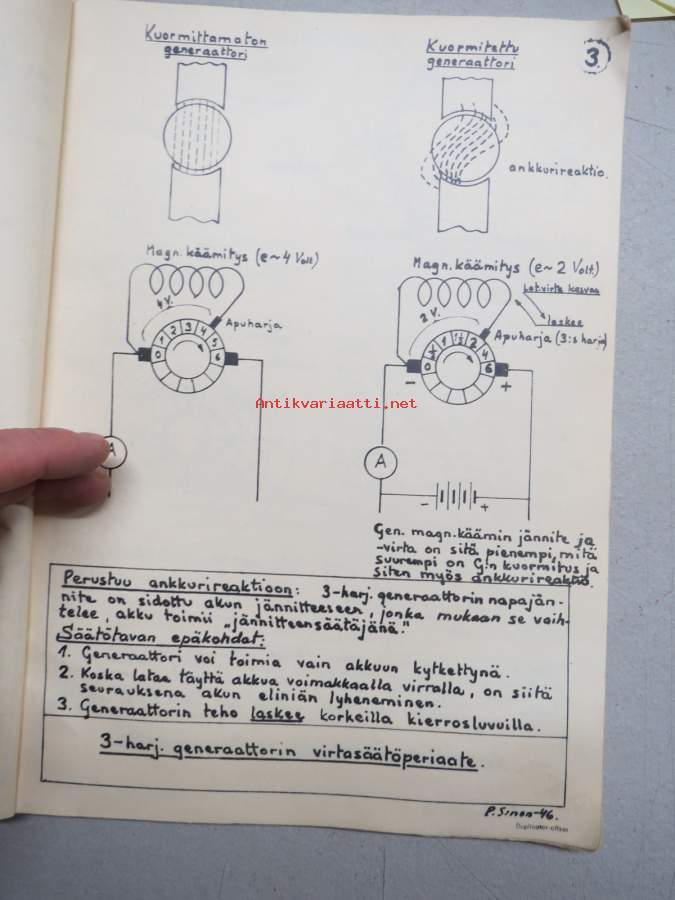 Kuormittamaton
generaattori
Kuormitettu
generaattori
3.
ankkurireaktio.
Magn. käämitys (e~4 Volt)
4 V.
Apuharja
0 1 2 3 4 5 6
A
Magn. käämitys (e~2 Volt.)
Lat.virta kasvaa
laskee
2 V.
Apuharja (3:s harja)
0 ½ 1 1½ 2 4 6
- +
A
- +
Gen. magn.käämin jännite ja
-virta on sitä pienempi, mitä
suurempi on G:n kuormitus ja
siten myös ankkurireaktio.
Perustuu ankkurireaktioon: 3-harj. generaattorin napajän-
nite on sidottu akun jännitteeseen, jonka mukaan se vaih-
telee, akku toimii „jännitteensäätäjänä."
Säätötavan epäkohdat:
1. Generaattori voi toimia vain akkuun kytkettynä.
2. Koska lataa täyttä akkua voimakkaalla virralla, on siitä
seurauksena akun eliniän lyheneminen.
3. Generaattorin teho laskee korkeilla kierrosluvuilla.
3-harj. generaattorin virtasäätöperiaate.
P. Simon-46.
Duplicator-offset
Antikvariaatti.net